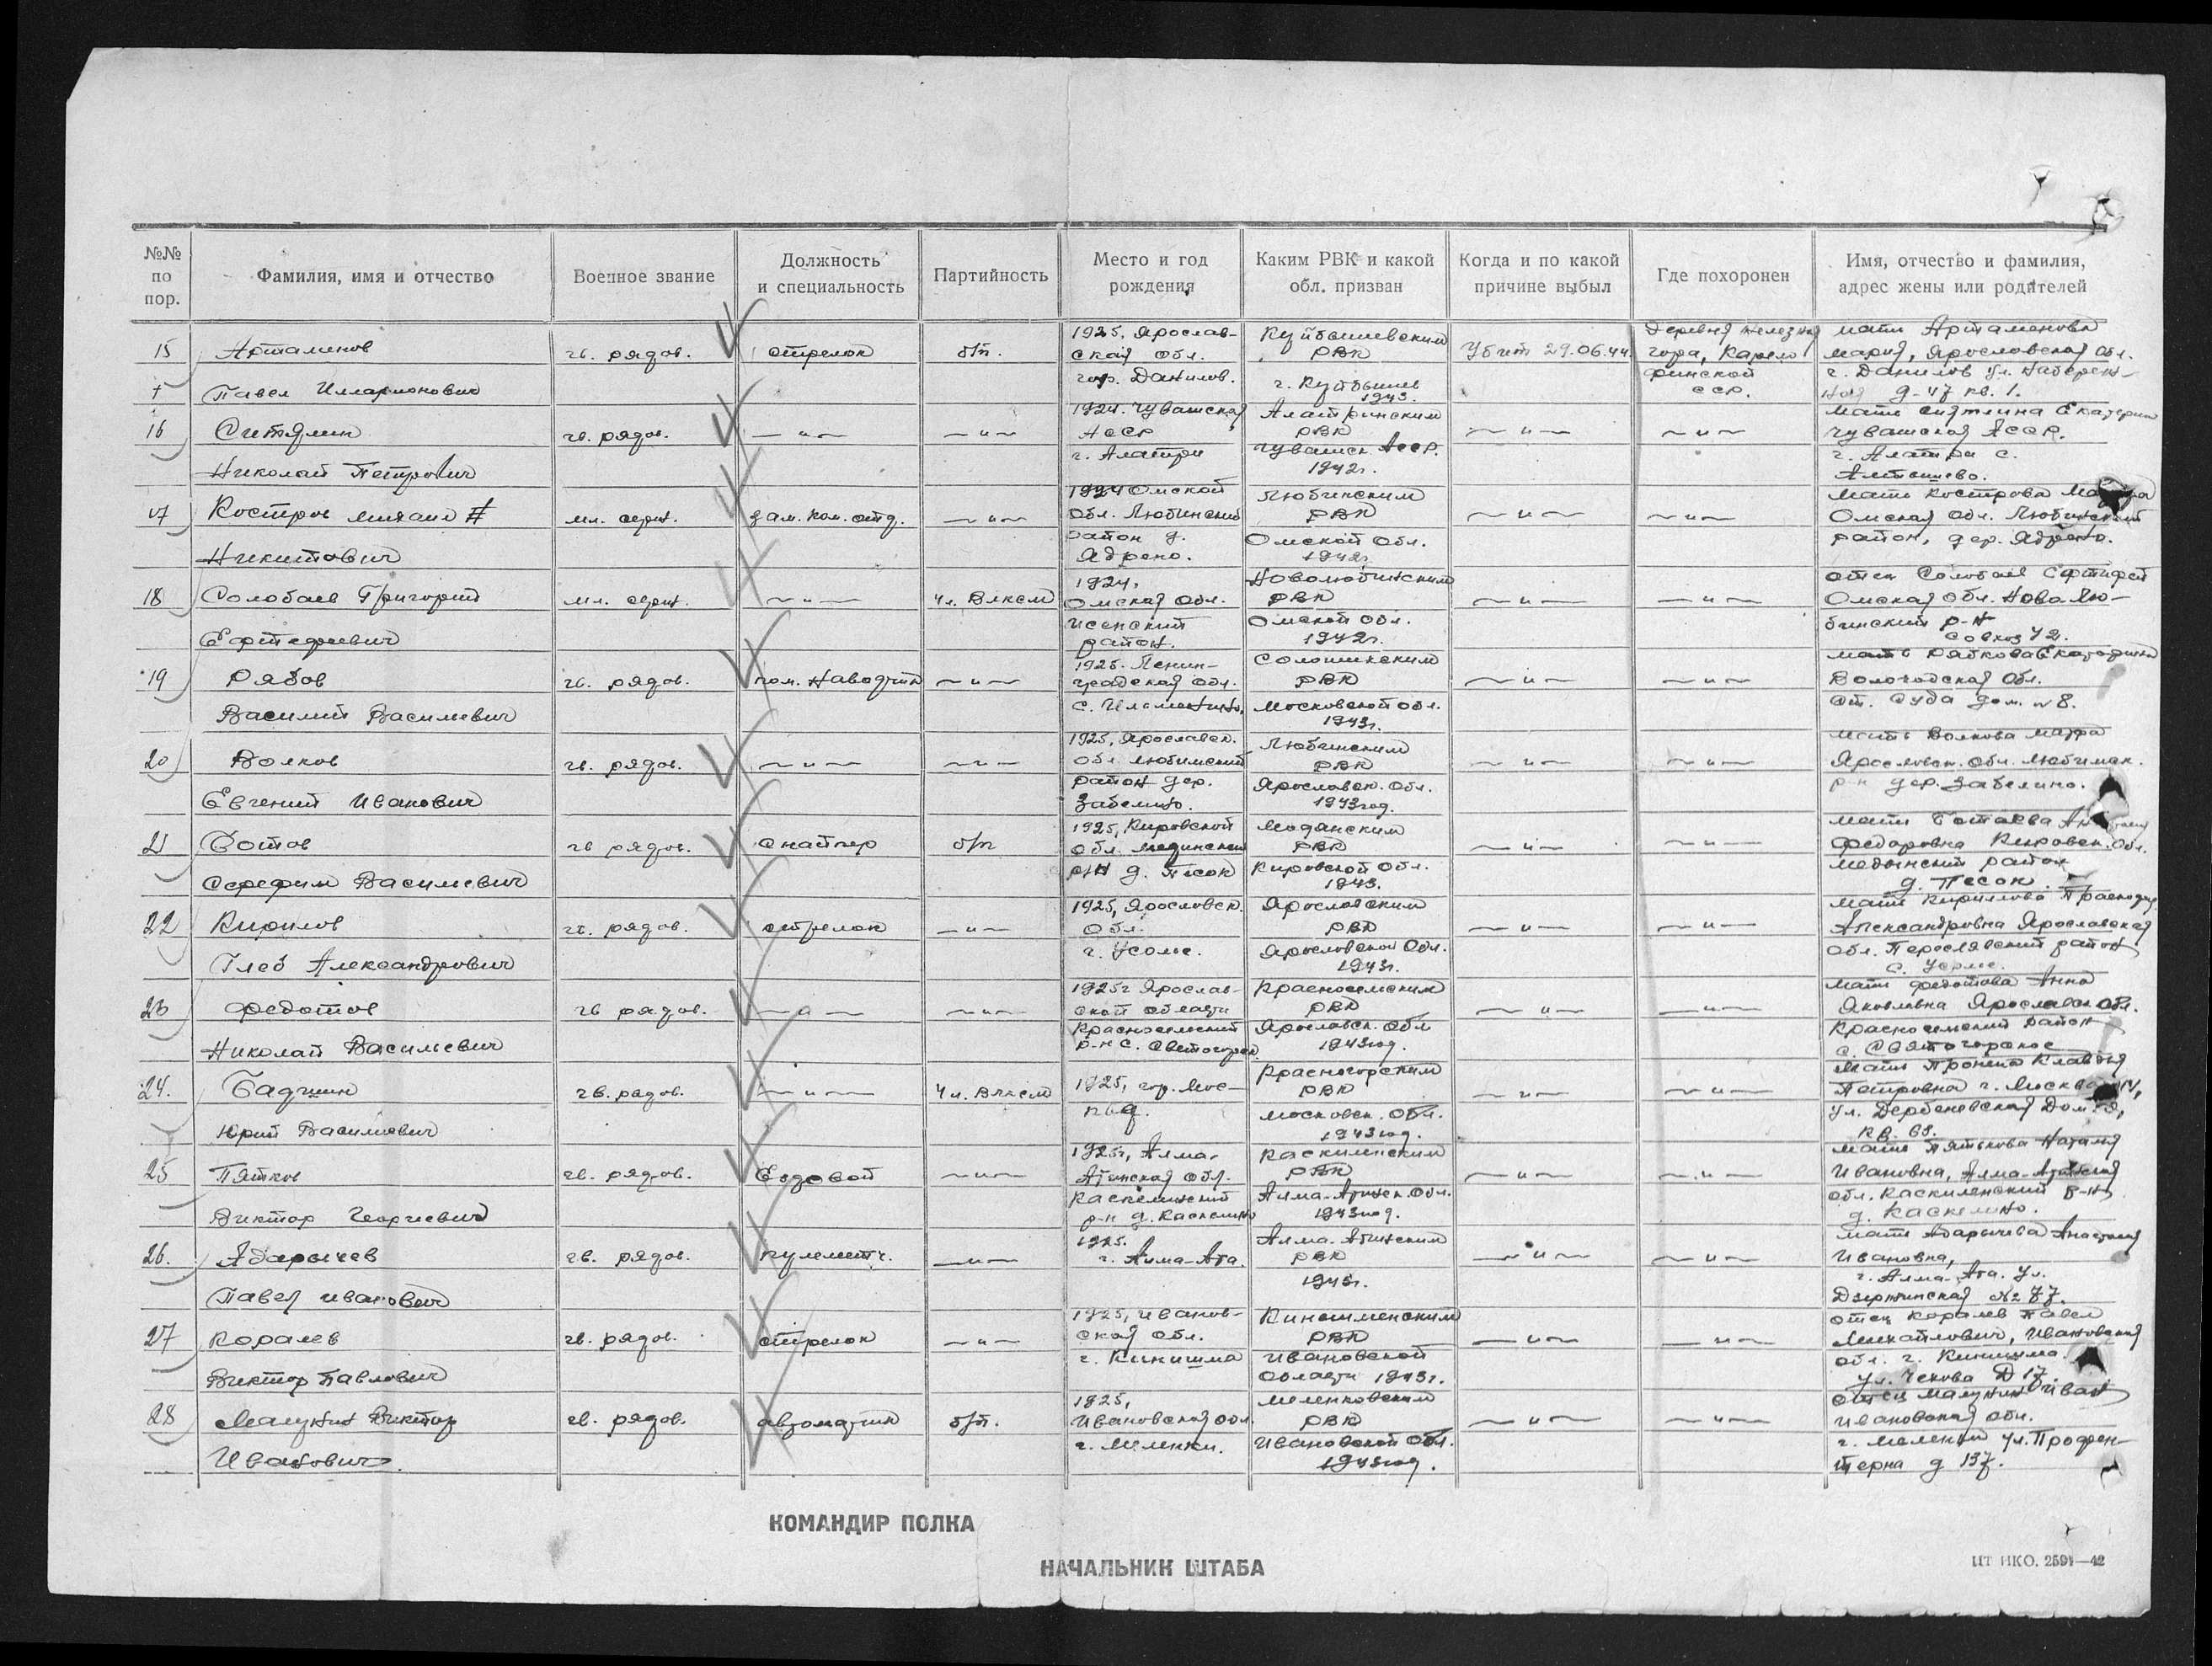 №№ по пор.
Фамилия, имя и отчество
Военное звание
Должность и специальность
Партийность
Место и год рождения
Каким РВК и какой обл. призван
Когда и по какой причине выбыл
Где похоронен
Имя, отчество и фамилия, адрес жены или родителей
15
Артаменов
Павел Илларионович
гв. рядов.
стрелок
б/п.
1925, Ярослав-
ская обл.
гор. Данилов.
Куйбышевским
РВК
г. Куйбышев
1943.
Убит 29.06.44
Деревня Железная
гора, Карело
финской
ССР.
мать Артаменова
Мария, Ярославская обл.
г. Данилов ул. Набереж-
ная д-47 кв. 1.
16
Ситялин
Николай Петрович
гв. рядов.
—"—
—"—
1924. Чувашская
АССР
г. Алатри
Алатринским
РВК
Чувашск. АССР.
1942г.
—"—
—"—
мать Ситялина Екатерина
Чувашская АССР.
г. Алатри с.
Алтышево.
17
Костров Михаил
Никитович
мл. серж.
зам. ком. отд.
—"—
1924 Омской
обл. Любинский
район д.
Ядрено.
Любинским
РВК
Омской обл.
1942г.
—"—
—"—
мать Кострова
Омская обл. Любинский
район, дер. Ядрено.
18
Солобаев Григорий
Ефтефеевич
мл. серж.
—"—
чл. ВЛКСМ
1924,
Омская обл.
Исенский
район.
Новолюбинским
РВК
Омской обл.
1942г.
—"—
—"—
отец Солобаев
Омская обл. Ново Лю-
бинский р-н
совхоз 42.
19
Рябов
Василий Васильевич
гв. рядов.
пом. наводчик
—"—
1925. Ленин-
градская обл.
РВК
Московской обл.
1943г.
—"—
—"—
мать Рябкова Екатерина
Вологодская обл.
ст. Суда дом. №8.
20
Волков
Евгений Иванович
гв. рядов.
—"—
—"—
1925, Ярославск.
обл. Любимский
район дер.
Забелино.
Любинским
РВК
Ярославск. обл.
1943 год.
—"—
—"—
мать Волкова
Ярославск. обл. Любимск.
р-н дер. Забелино.
21
Ботов
Серефим Васильевич
гв рядов.
снайпер
б/п
1925, Кировской
обл.
р/н д. Песок
РВК
Кировской обл.
1943.
—"—
—"—
мать
Федоровна Кировск. обл.
район
д. Песок.
22
Кирилов
Глеб Александрович
гв. рядов.
стрелок
—"—
1925, Ярославск.
обл.
г. Усолье.
Ярославским
РВК
Ярославской обл.
1943г.
—"—
—"—
мать Кирилова
Александровна Ярославская
обл. район
23
Федотов
Николай Васильевич
гв рядов.
—"—
—"—
1925г Ярослав-
ской области
Красносельский
р-н с.
Красносельским
РВК
Ярославск. обл
1943 год.
—"—
—"—
мать Федотова Анна
Яковлевна Ярославск. обл.
Красносельский район
с. Святогорское
24.
Бадчин
Юрий Васильевич
гв. рядов.
—"—
чл. ВЛКСМ
1925, гор. Мос-
ква.
Красногорским
РВК
Московск. обл.
1943 год.
—"—
—"—
мать Пронина Клавдия
Петровна г. Москва
ул. Дербеневская дом
кв. 68.
25
Пятков
Виктор Георгиевич
гв. рядов.
Ездовой
—"—
1925г, Алма-
Атинская обл.
Каскеленский
р-н д. Каскелино
Каскиленским
РВК
Алма-Атинск. обл.
1943 год.
—"—
—"—
мать Пятькова Наталья
Ивановна, Алма-Атинская
обл. Каскиленский р-н
д. Каскелино.
26.
Адарычев
Павел Иванович
гв. рядов.
пулеметч.
—"—
1925.
г. Алма-Ата.
Алма-Атинским
РВК
1943г.
—"—
—"—
мать Адарычева Анастасия
Ивановна,
г. Алма-Ата. ул.
Дзержинская № 77.
27
Коралев
Виктор Павлович
гв. рядов.
стрелок
—"—
1925, Иванов-
ская обл.
г. Кинишма
Кинешменским
РВК
Ивановской
области 1943г.
—"—
—"—
отец Коралев Павел
Михайлович, Ивановская
обл. г. Кинишма.
ул. Чехова Д 17.
28
Малунин Виктор
Иванович.
гв. рядов.
автоматчик
б/п.
1925,
Ивановская обл.
г. Меленки.
Меленковским
РВК
Ивановской обл.
1943 год.
—"—
—"—
отец Малунин Иван
Ивановская обл.
г. Меленки ул. Профин-
терна д 137.
КОМАНДИР ПОЛКА
НАЧАЛЬНИК ШТАБА
ЦТ НКО. 2591—42